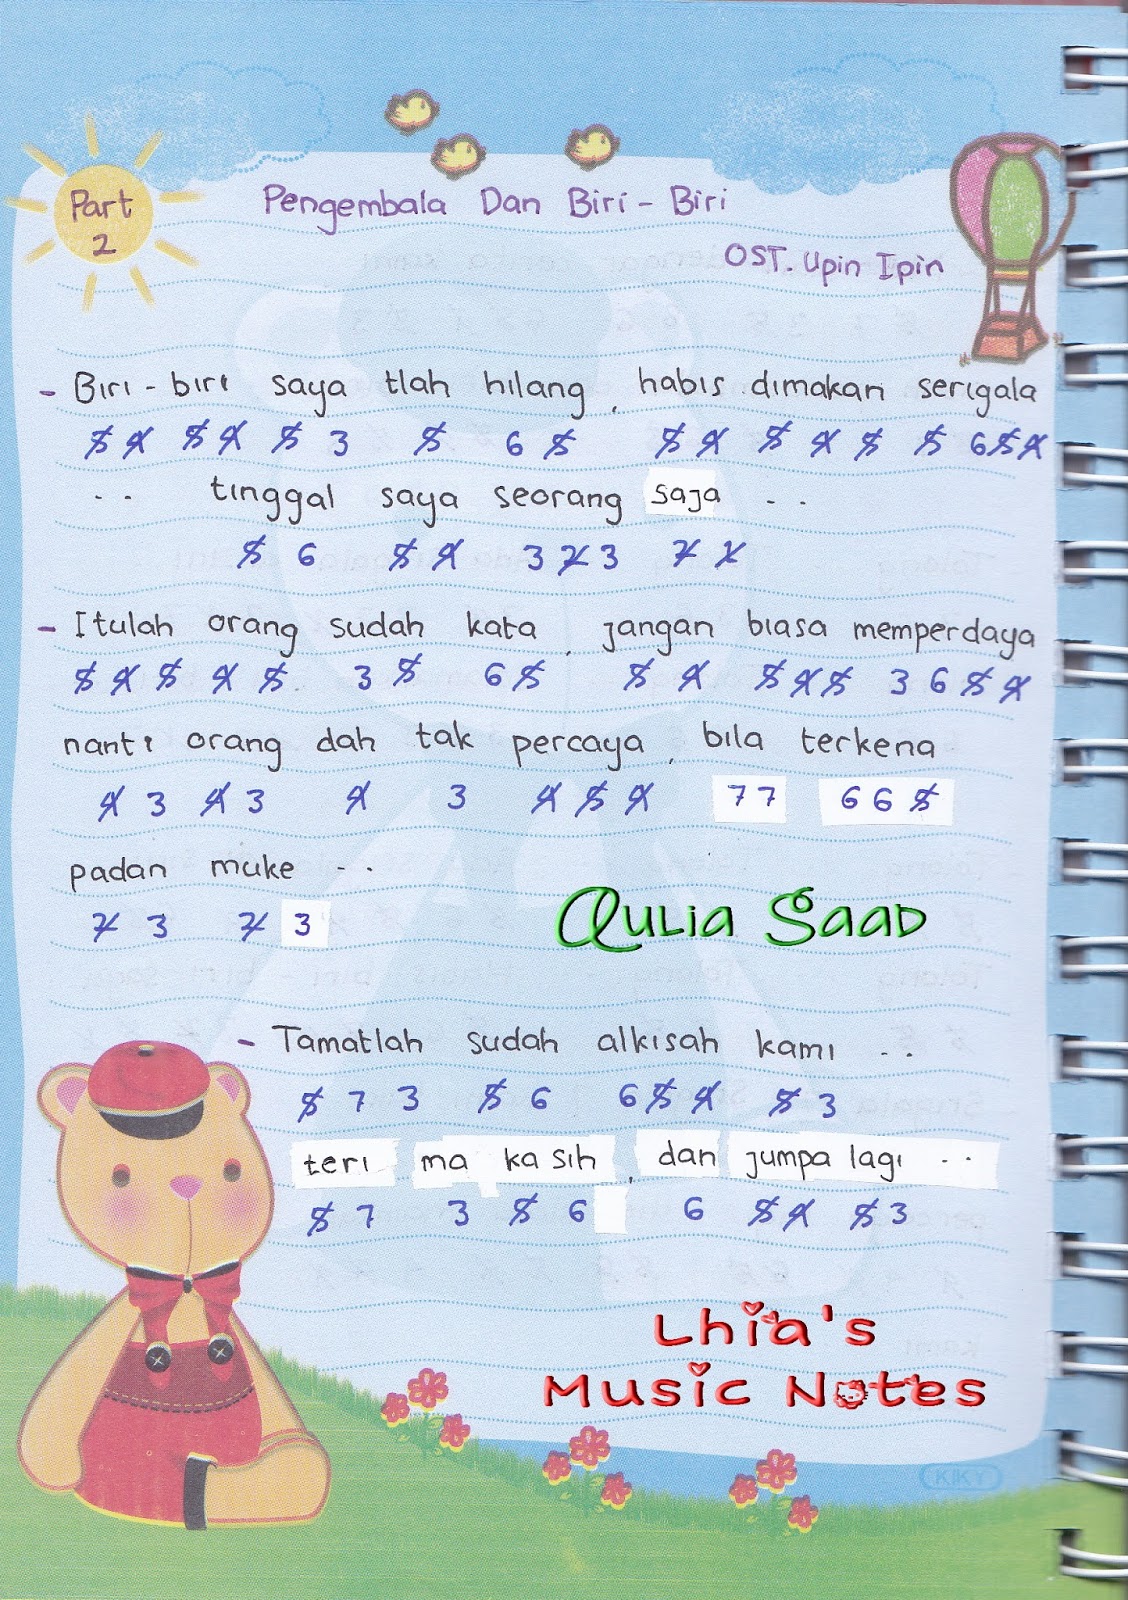 Part
2
Pengembala Dan Biri - Biri
OST. Upin Ipin
- Biri - biri saya tlah hilang, habis dimakan serigala
5̸ 4̸ 5̸ 4̸ 5̸ 3 5̸ 6 5̸ 5̸ 4̸ 5̸ 4̸ 5̸ 5̸ 6 5̸ 4̸
.. tinggal saya seorang saja ..
5̸ 6 5̸ 4̸ 3 7̸ 3 7̸
- Itulah orang sudah kata, jangan biasa memperdaya
5̸ 4̸ 5̸ 4̸ 5̸ 3 5̸ 6 5̸ 5̸ 4̸ 5̸ 4̸ 5̸ 3 6 5̸ 4̸
nanti orang dah tak percaya, bila terkena
4̸ 3 4̸ 3 4̸ 3 4̸ 5̸ 4̸ 7 7 6 6 5̸
padan muke ..
7̸ 3 7̸ 3
Aulia Saad
- Tamatlah sudah alkisah kami ..
5̸ 7 3 5̸ 6 6 5̸ 4̸ 5̸ 3
teri ma kasih, dan jumpa lagi ..
5̸ 7 3 5̸ 6 6 5̸ 4̸ 5̸ 3
Lhia's
Music Notes
KIKY